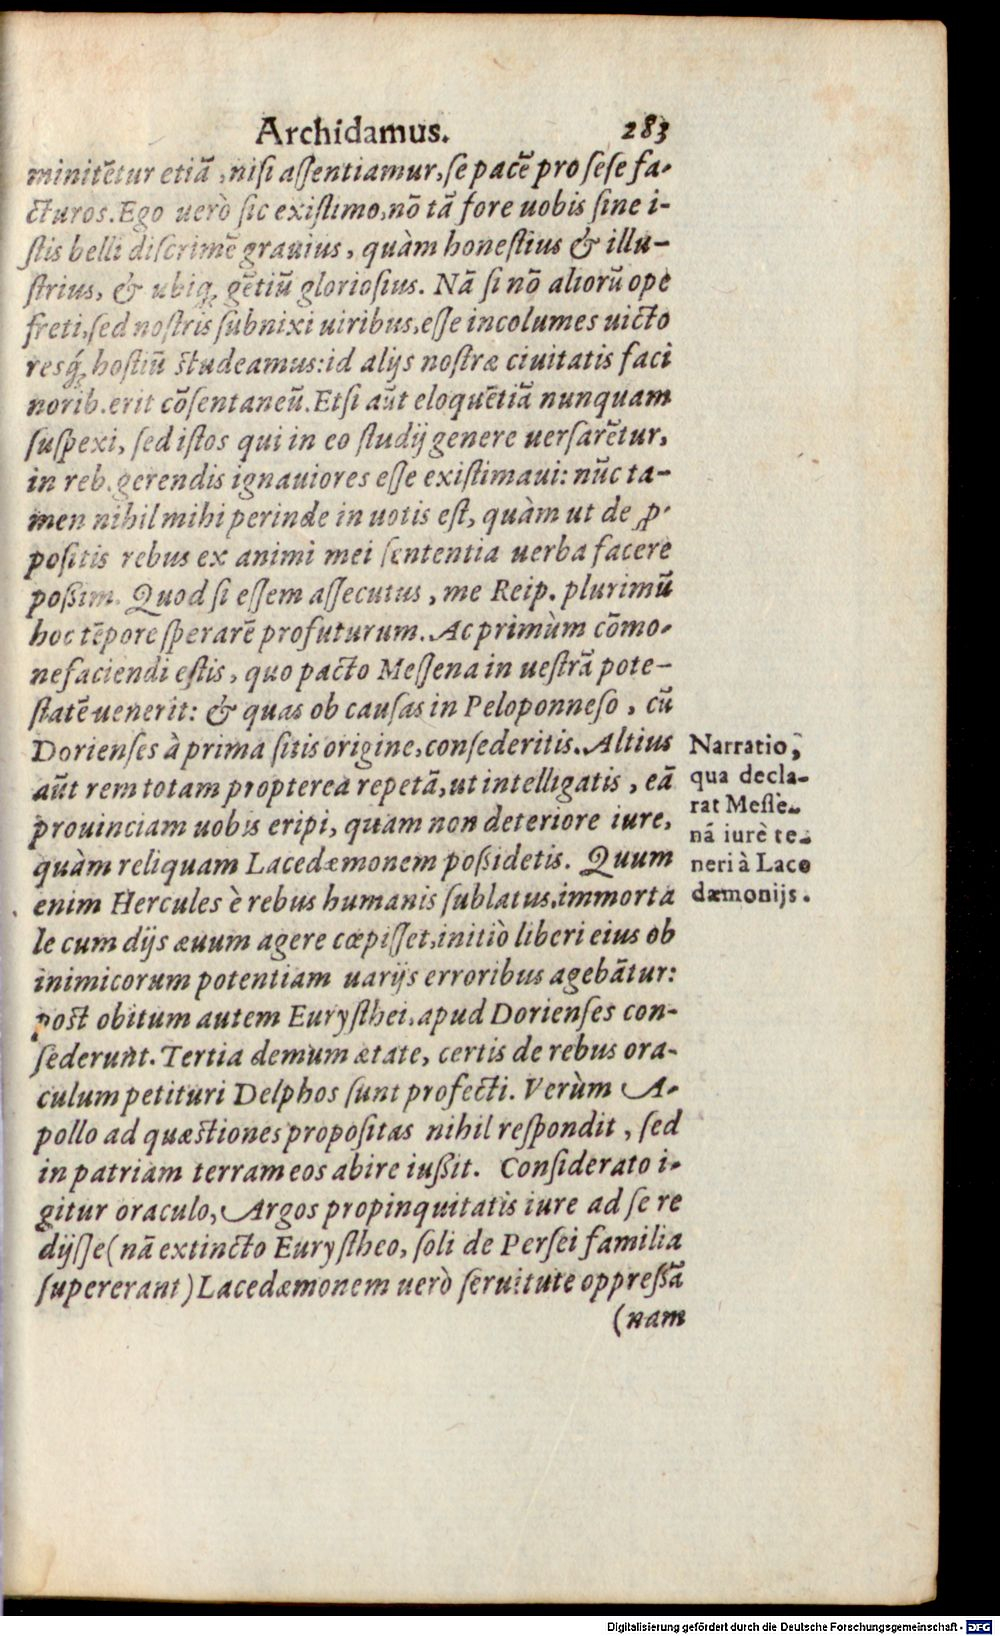 Archidamus. 283
minitẽtur etiã, nisi aſſentiamur, ſe pacẽ pro ſeſe fa-
cturos. Ego uerò ſic exiſtimo, nõ tã fore uobis ſine i-
ſtis belli diſcrimẽ grauius, quàm honeſtius & illu-
ſtrius, & ubiq; gẽtiũ glorioſius. Nã ſi nõ aliorũ ope
freti, ſed noſtris ſubnixi uiribus, eſſe incolumes uicto
resq́; hoſtiũ ſtudeamus: id alijs noſtræ ciuitatis faci
norib. erit cõſentaneũ. Etſi aũt eloquẽtiã nunquam
ſuſpexi, ſed iſtos qui in eo ſtudij genere uerſarẽtur,
in reb. gerendis ignauiores eſſe exiſtimaui: nũc ta-
men nihil mihi perinde in uotis eſt, quàm ut de ꝓ-
poſitis rebus ex animi mei ſententia uerba facere
poßim. Quod ſi eſſem aſſecutus, me Reip. plurimũ
hoc tẽpore ſperarẽ profuturum. Ac primùm cõmo-
nefaciendi eſtis, quo pacto Meſſena in ueſtrã pote-
ſtatẽ uenerit: & quas ob cauſas in Peloponneſo, cũ
Dorienſes à prima ſitis origine, conſederitis. Altius
aũt rem totam propterea repetã, ut intelligatis, eã
prouinciam uobis eripi, quam non deteriore iure,
quàm reliquam Lacedæmonem poßidetis. Quum
enim Hercules è rebus humanis ſublatus, immorta
le cum dijs æuum agere cœpiſſet, initiò liberi eius ob
inimicorum potentiam uarijs erroribus agebãtur:
poſt obitum autem Euryſthei, apud Dorienſes con-
ſederunt. Tertia demum ætate, certis de rebus ora-
culum petituri Delphos ſunt profecti. Verùm A-
pollo ad quæſtiones propoſitas nihil reſpondit, ſed
in patriam terram eos abire iußit. Conſiderato i-
gitur oraculo, Argos propinquitatis iure ad ſe re
dijſſe (nã extincto Euryſtheo, ſoli de Perſei familia
ſupererant) Lacedæmonem uerò ſeruitute oppreſſã
(nam
Narratio,
qua decla-
rat Meſſe-
nã iurè te-
neri à Lace
dæmonijs.
Digitalisierung gefördert durch die Deutsche Forschungsgemeinschaft - DFG